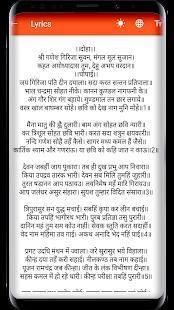 Lyrics
Tт
।।दोहा।।
श्री गणेश गिरिजा सुवन, मंगल मूल सुजान।
कहत अयोध्यादास तुम, देहु अभय वरदान।।
।।चौपाई।।
जय गिरिजा पति दीन दयाला। सदा करत सन्तन प्रतिपाला।।
भाल चन्द्रमा सोहत नीके। कानन कुण्डल नागफनी के।।
अंग गौर शिर गंग बहाये। मुण्डमाल तन छार लगाये।।
वस्त्र खाल बाघम्बर सोहे। छवि को देख नाग मुनि मोहे।।1।।
मैना मातु की ह्वै दुलारी। बाम अंग सोहत छवि न्यारी।।
कर त्रिशूल सोहत छवि भारी। करत सदा शत्रुन क्षयकारी।।
नन्दि गणेश सोहै तहँ कैसे। सागर मध्य कमल हैं जैसे।।
कार्तिक श्याम और गणराऊ। या छवि को कहि जात न काऊ।।2।।
देवन जबहीं जाय पुकारा। तब ही दुख प्रभु आप निवारा।।
किया उपद्रव तारक भारी। देवन सब मिलि तुमहिं जुहारी।।
तुरत षडानन आप पठायउ। लवनिमेष महँ मारि गिरायउ।।
आप जलंधर असुर संहारा। सुयश तुम्हार विदित संसारा।।3।।
त्रिपुरासुर सन युद्ध मचाई। सबहिं कृपा कर लीन बचाई।।
किया तपहिं भागीरथ भारी। पुरब प्रतिज्ञा तसु पुरारी।।
दानिन महं तुम सम कोउ नाहीं। सेवक स्तुति करत सदाहीं।।
वेद नाम महिमा तव गाई। अकथ अनादि भेद नहिं पाई।।4।।
प्रगट उदधि मंथन में ज्वाला। जरे सुरासुर भये विहाला।।
कीन्ह दया तहँ करी सहाई। नीलकण्ठ तब नाम कहाई।।
पूजन रामचंद्र जब कीन्हा। जीत के लंक विभीषण दीन्हा।।
सहस कमल में हो रहे धारी। कीन्ह परीक्षा तबहिं पुरारी।।5।।